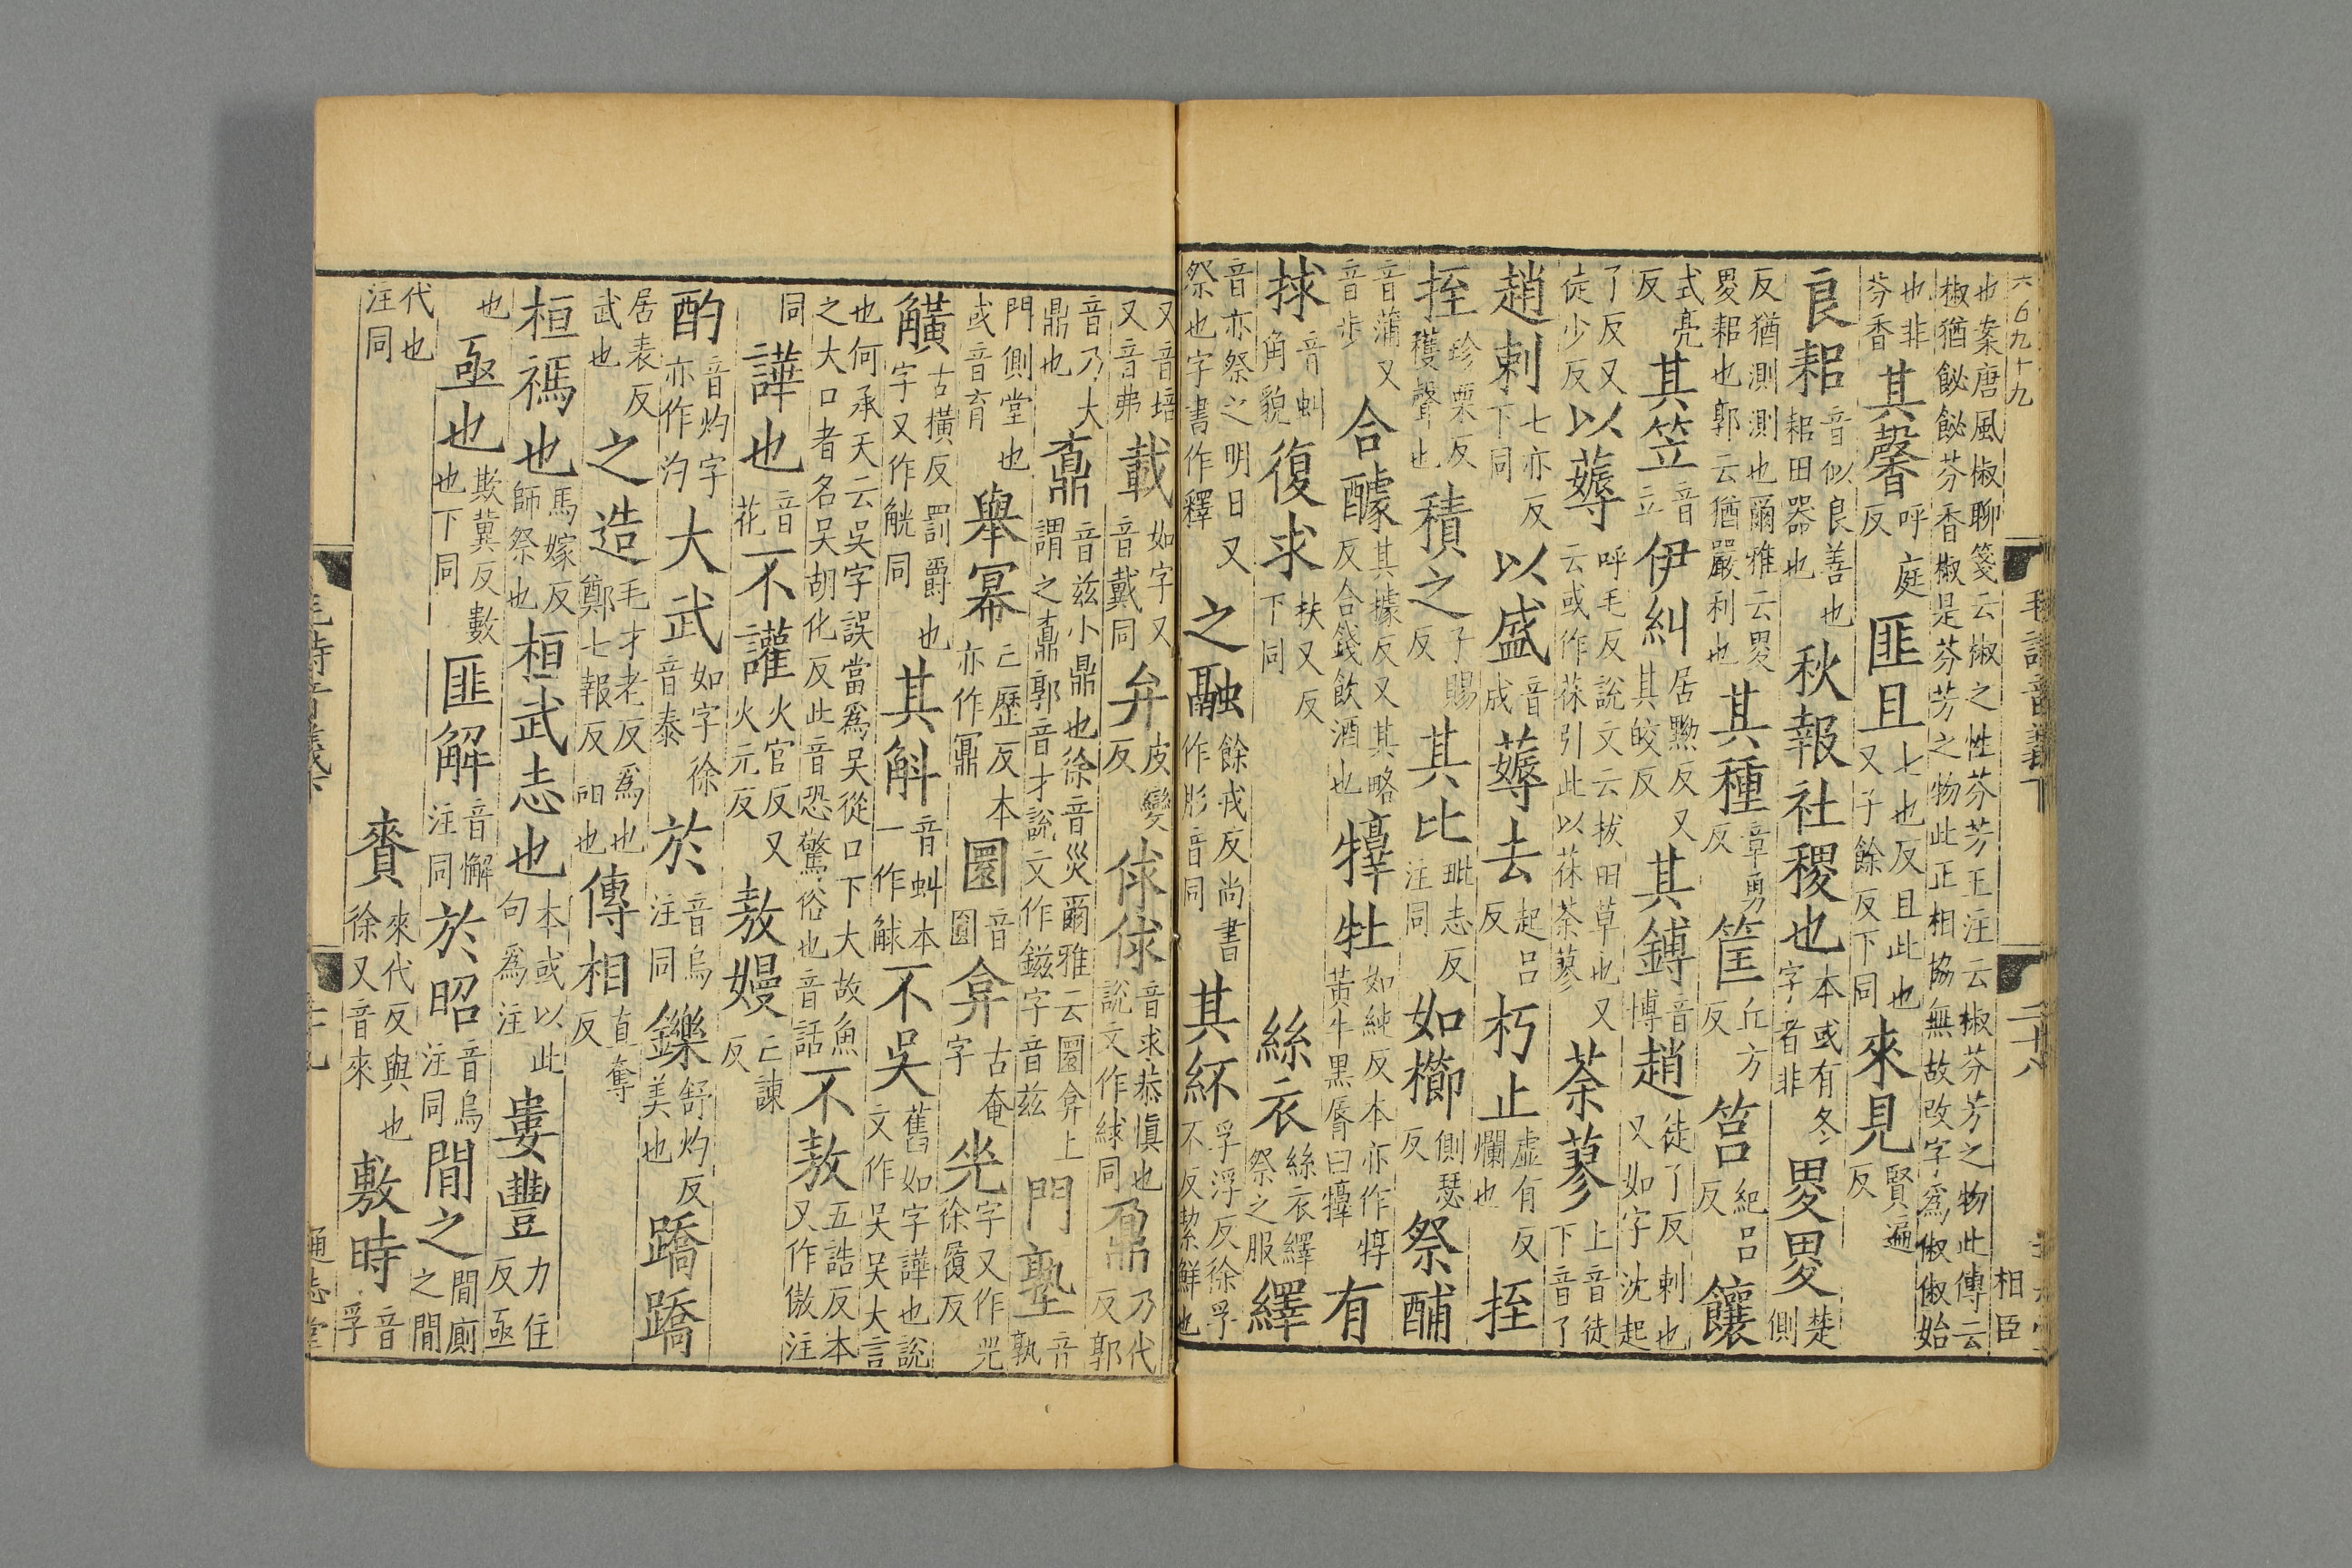 也案唐風椒聊箋云椒之性芬芳王注云椒芬芳之物此傳云
椒猶飶飶芬香椒是芬芳之物此正相協無故改字爲俶俶始
也非
芬香
其馨
呼庭
反
匪且
七也反且此也
又子餘反下同
來見
賢遍
反
良耜
音似良善也
耜田器也
秋報社稷也
本或有冬
字者非
畟畟
楚
側
反猶測測也爾雅云畟
畟耜也郭云猶嚴利也
其種
章勇
反
筐
丘方
反
筥
紀呂
反
饟
式亮
反
其笠
音
立
伊糾
居黝反又
其皎反
其鎛
音
博
趙
徒了反刺也
又如字沈起
了反又
徒少反
以薅
呼毛反說文云拔田草也又
云或作茠引此以茠荼蓼
荼蓼
上音徒
下音了
趙剌
七亦反
下同
以盛
音
成
薅去
起呂
反
朽止
虛有反
爛也
挃
挃
珍栗反
穫聲也
積之
子賜
反
其比
毗志反
注同
如櫛
側瑟
反
祭酺
音蒲又
音步
合醵
其據反又其略
反合錢飲酒也
犉牡
如純反本亦作犉
黃牛黑脣曰犉
有
捄
音虯
角貌
復求
扶又反
下同
絲衣
絲衣繹
祭之服
繹
音亦祭之明日又
祭也字書作釋
之融
餘戎反尚書
作肜音同
其紑
孚浮反徐孚
不反絜鮮也
六百九十九
毛詩音義下
二十八
相臣
又音培
又音弗
載
如字又
音戴同
弁
皮變
反
俅俅
音求恭慎也
說文作絿同
鼐
乃代
反郭
音乃大
鼎也
鼒
音茲小鼎也徐音災爾雅云圜弇上
謂之鼒郭音才說文作鎡字音茲
門塾
音
孰
門側堂也
或音育
舉冪
亡歷反本
亦作鼏
圜
音
圓
弇
古奄
字
光
字又作兕
徐履反
觵
古橫反罰爵也
字又作觥同
其觓
音虯本
一作觩
不吳
舊如字譁也說
文作吳吳大言
也何承天云吳字誤當爲吴從口下大故魚
之大口者名吴胡化反此音恐驚俗也音話
不敖
五誥反本
又作傲注
同
譁也
音
花
不讙
火官反又
火元反
敖嫚
亡諫
反
酌
音灼字
亦作汋
大武
如字徐
音泰
於
音烏
注同
鑠
舒灼反
美也
蹻蹻
居表反
武也
之造
毛才老反爲也
鄭七報反詣也
傳相
直專
反
桓禡也
馬嫁反
師祭也
桓武志也
本或以此
句爲注
婁豐
力住
反亟
也
亟也
欺冀反數
也下同
匪解
音懈
注同
於昭
音烏
注同
間之
間廁
之間
代也
注同
賚
來代反與也
徐又音來
敷時
音
孚
通志堂